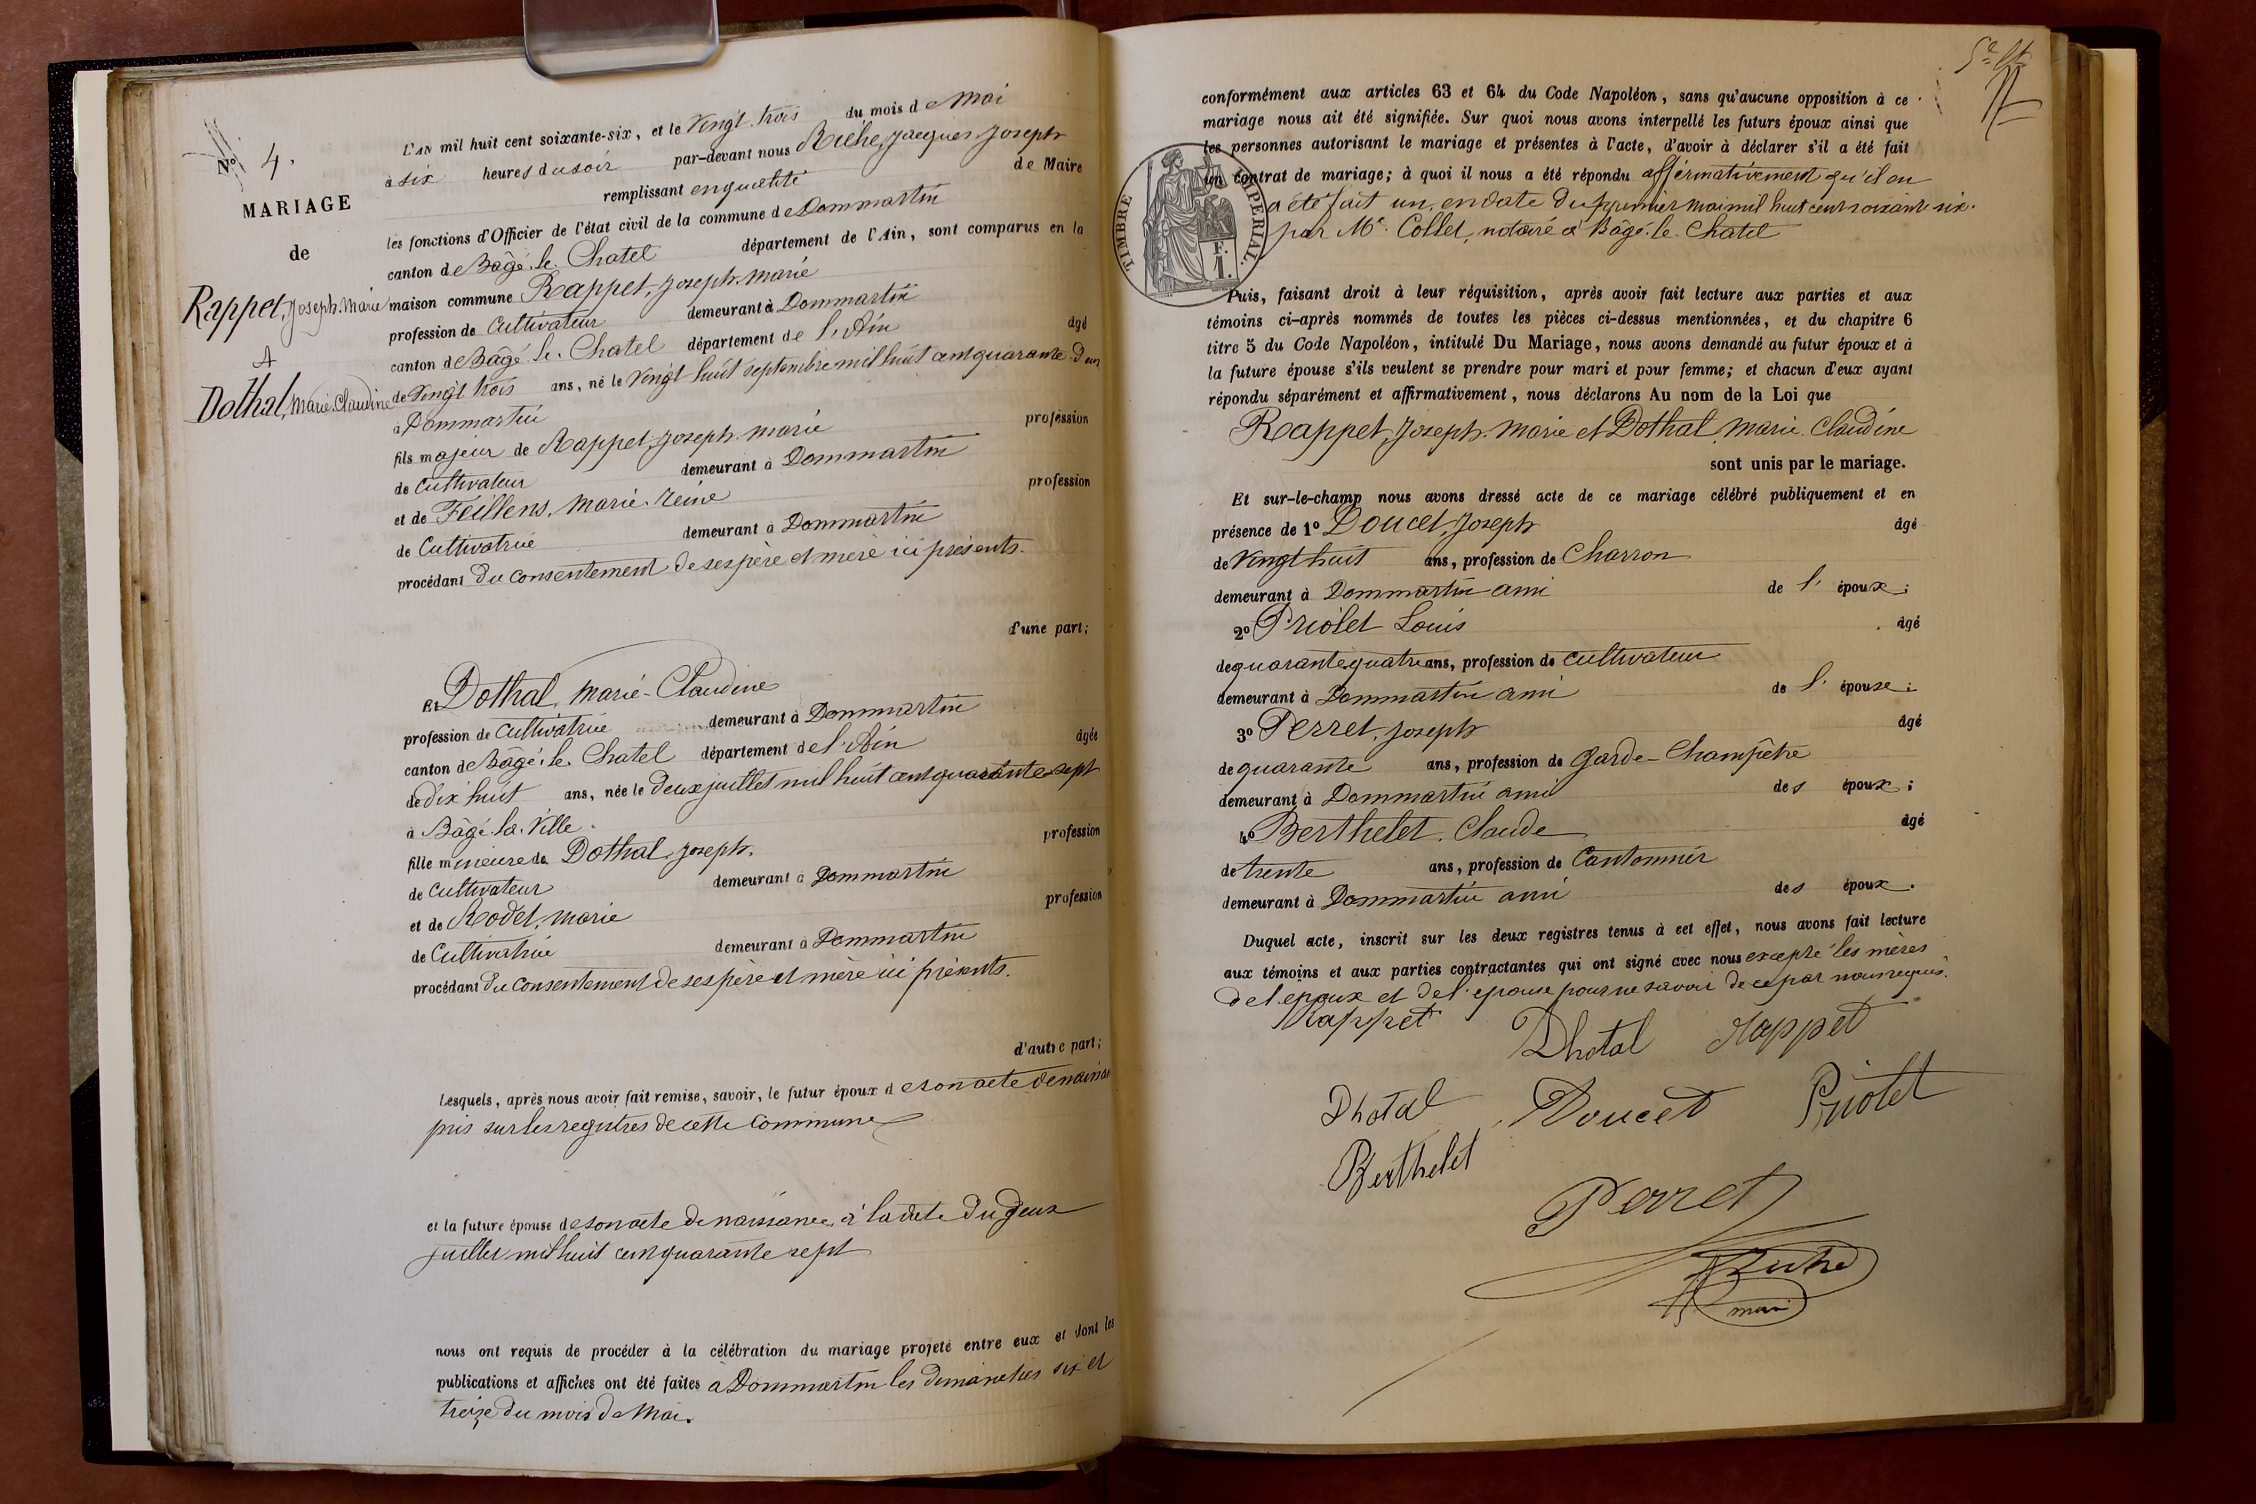 N° 4.
MARIAGE
de
Rappet, Joseph. Marie
A
Dothal, Marie. Claudine
L'AN mil huit cent soixante-six, et le Vingt trois du mois de Mai
à six heures du soir par-devant nous Riche, Jacques Joseph
remplissant en qualité de Maire
les fonctions d'Officier de l'état civil de la commune de Dommartin
canton de Bâgé. le. Chatel département de l'Ain, sont comparus en la
maison commune Rappet, Joseph. Marie
profession de Cultivateur demeurant à Dommartin
canton de Bâgé. le. Chatel département de l'Ain âgé
de Vingt trois ans, né le Vingt huit septembre mil huit cent quarante Deux
à Dommartin
fils majeur de Rappet, Joseph. Marie profession
de Cultivateur demeurant à Dommartin
et de Feillens, Marie. Reine profession
de Cultivatrice demeurant à Dommartin
procédant du consentement de ses père et mère ici présents.
d'une part;
Et Dothal, Marie-Claudine
profession de Cultivatrice demeurant à Dommartin
canton de Bâgé. le. Chatel département de l'Ain âgée
de dix huit ans, née le deux juillet mil huit cent quarante sept
à Bâgé. la. Ville.
fille mineure de Dothal, Joseph. profession
de Cultivateur demeurant à Dommartin
et de Rodet, Marie profession
de Cultivatrice demeurant à Dommartin
procédant du consentement de ses père et mère ici présents.
d'autre part;
Lesquels, après nous avoir fait remise, savoir, le futur époux de son acte de naissance
pris sur les registres de cette Commune
et la future épouse de son acte de naissance, à la date du deux
juillet mil huit cent quarante sept
nous ont requis de procéder à la célébration du mariage projeté entre eux et dont les
publications et affiches ont été faites à Dommartin les dimanches six et
treize du mois de Mai.
conformément aux articles 63 et 64 du Code Napoléon, sans qu'aucune opposition à ce
mariage nous ait été signifiée. Sur quoi nous avons interpellé les futurs époux ainsi que
les personnes autorisant le mariage et présentes à l'acte, d'avoir à déclarer s'il a été fait
un contrat de mariage; à quoi il nous a été répondu affirmativement qu'il en
a été fait un, en date du premier mai mil huit cent soixante six.
par Me. Collet, notaire à Bâgé. le. Chatel
TIMBRE IMPERIAL.
F.
1.
Puis, faisant droit à leur réquisition, après avoir fait lecture aux parties et aux
témoins ci-après nommés de toutes les pièces ci-dessus mentionnées, et du chapitre 6
titre 5 du Code Napoléon, intitulé Du Mariage, nous avons demandé au futur époux et à
la future épouse s'ils veulent se prendre pour mari et pour femme; et chacun d'eux ayant
répondu séparément et affirmativement, nous déclarons Au nom de la Loi que
Rappet, Joseph. Marie et Dothal, Marie. Claudine
sont unis par le mariage.
Et sur-le-champ nous avons dressé acte de ce mariage célébré publiquement et en
présence de 1° Doucet, Joseph âgé
de Vingt huit ans, profession de Charron
demeurant à Dommartin ami de l' époux;
2° Priolet Louis âgé
de quarante quatre ans, profession de cultivateur
demeurant à Dommartin ami de l' épouse;
3° Perret, Joseph âgé
de quarante ans, profession de Garde-Champêtre
demeurant à Dommartin ami des époux;
4° Berthelet. Claude âgé
de trente ans, profession de Cantonnier
demeurant à Dommartin ami des époux.
Duquel acte, inscrit sur les deux registres tenus à cet effet, nous avons fait lecture
aux témoins et aux parties contractantes qui ont signé avec nous excepté les mères
de l'époux et de l'épouse pour ne savoir de ce par nous requis.
Rappet Dhotal Rappet
Dhotal Doucet Priolet
Berthelet
Perret
Riche
maire